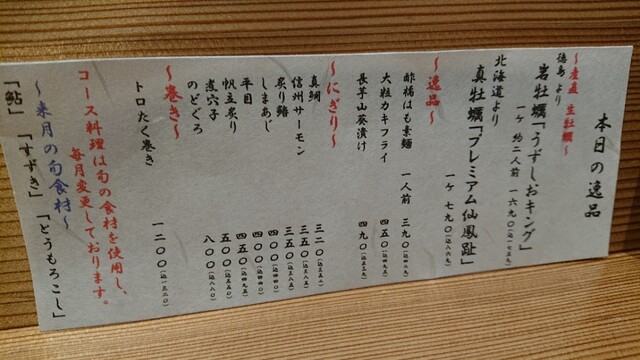 本日の逸品
～産直 生牡蠣～
徳島より
岩牡蠣「うずしおキング」
一ケ 約二人前 一六九〇
北海道より
真牡蠣「プレミアム仙鳳趾」
一ケ 七九〇(込八六九)
～逸品～
酢橘はも素麺 一人前 三九〇(込四二九)
大粒カキフライ 四五〇(込四九五)
長芋山葵漬け 四九〇(込五三九)
～にぎり～
真鯛 三二〇(込三五二)
信州サーモン 三五〇(込三八五)
炙り鰆 三五〇(込三八五)
しまあじ 四〇〇(込四四〇)
平目 四〇〇(込四四〇)
帆立炙り 四五〇(込四九五)
煮穴子 五〇〇(込五五〇)
のどぐろ 八〇〇(込八八〇)
～巻き～
トロたく巻き 一二〇〇(込一三二〇)
コース料理は旬の食材を使用し、
毎月変更しております。
～来月の旬食材～
「鮎」「すずき」「とうもろこし」